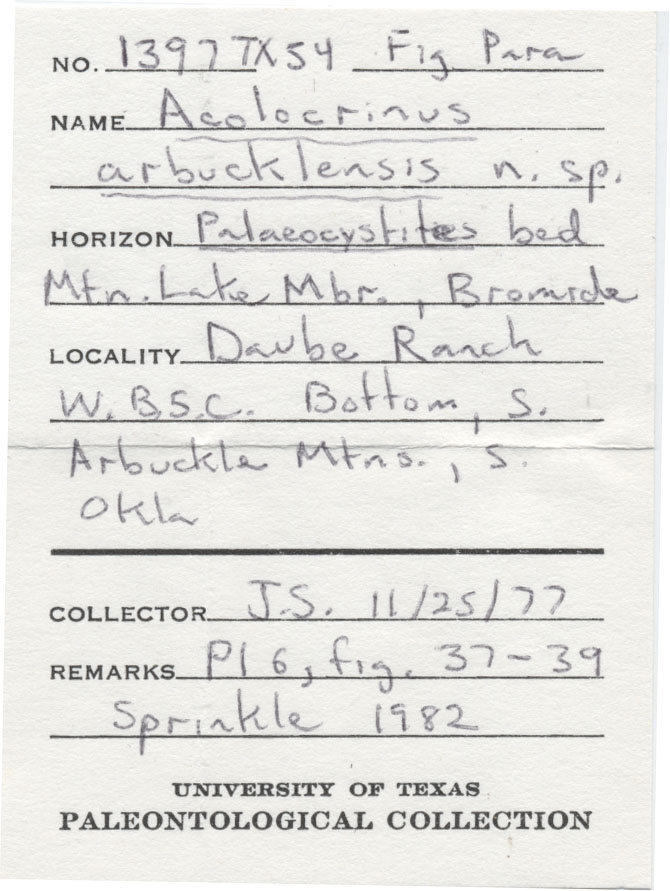 NO. 1397TX54 Fig Para
NAME Acolocrinus
arbucklensis n. sp.
HORIZON Palaeocystites bed
Mtn. Lake Mbr., Bromide
LOCALITY Daube Ranch
W.B.S.C. Bottom, S.
Arbuckle Mtns., S.
Okla
COLLECTOR J.S. 11/25/77
REMARKS Pl 6, fig. 37-39
Sprinkle 1982
UNIVERSITY OF TEXAS
PALEONTOLOGICAL COLLECTION